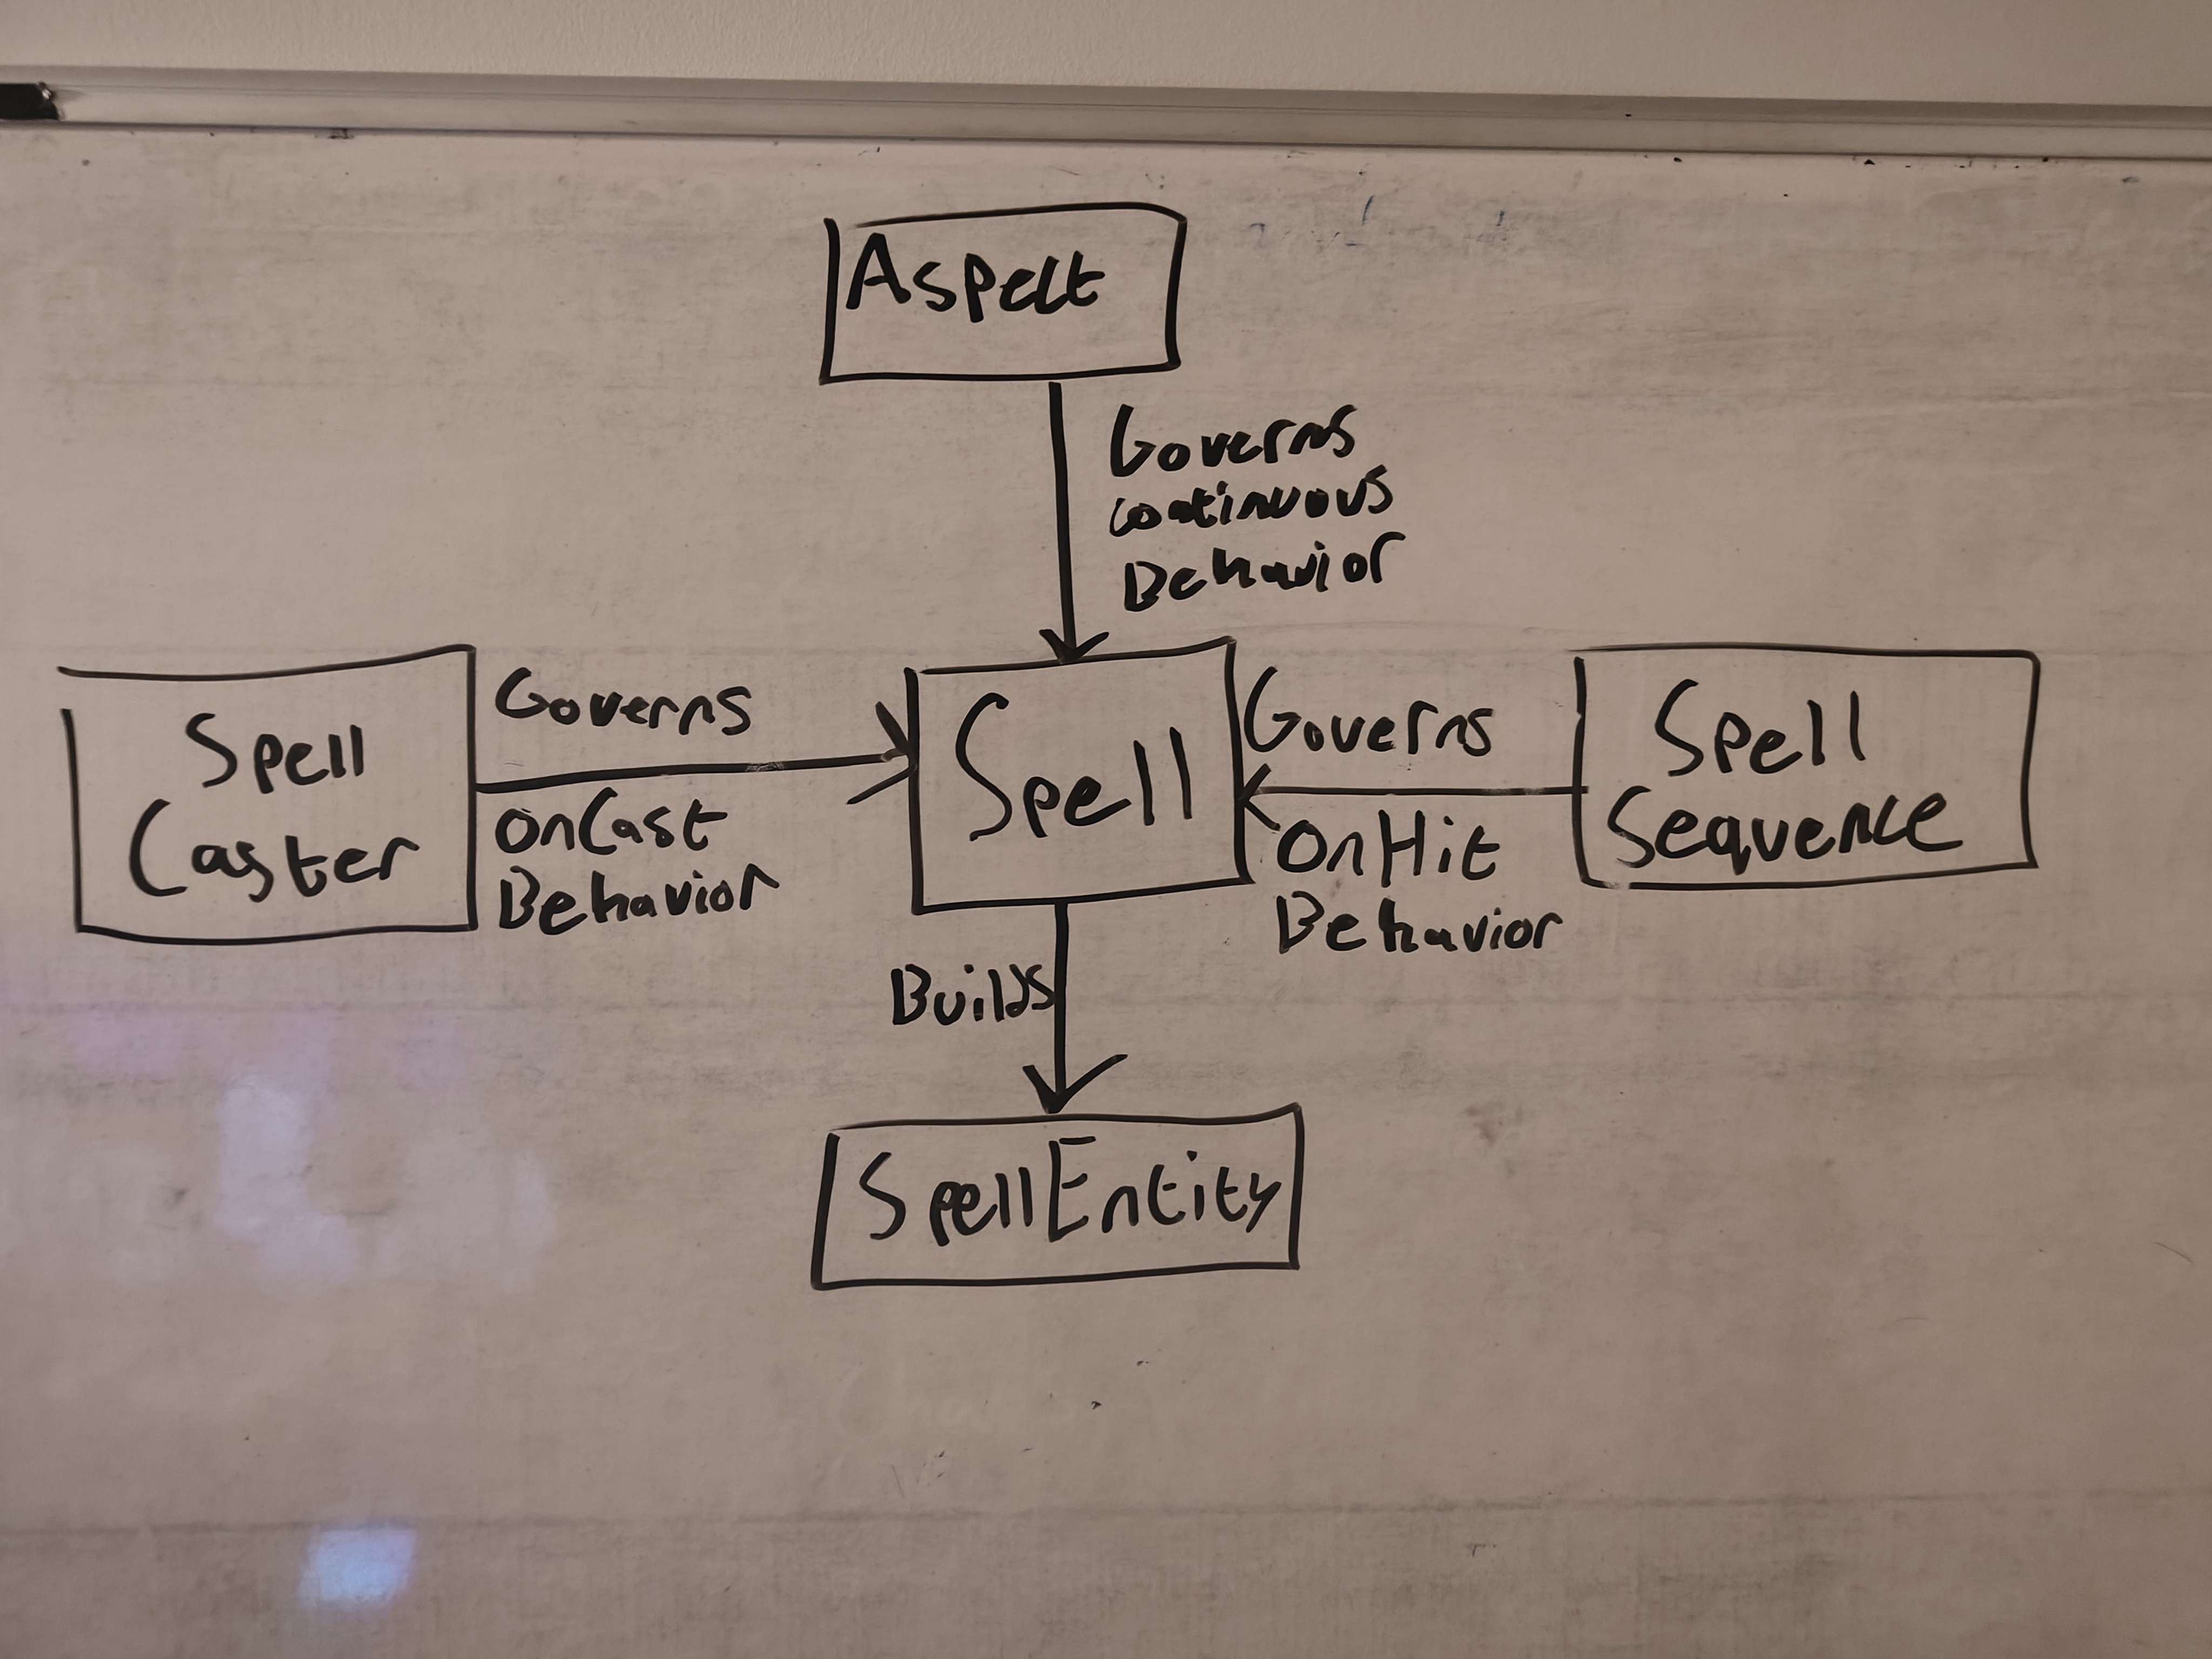 Aspect
Governs
continuous
Behavior
Spell
Caster
Governs
OnCast
Behavior
Spell
Governs
OnHit
Behavior
Spell
Sequence
Builds
SpellEntity